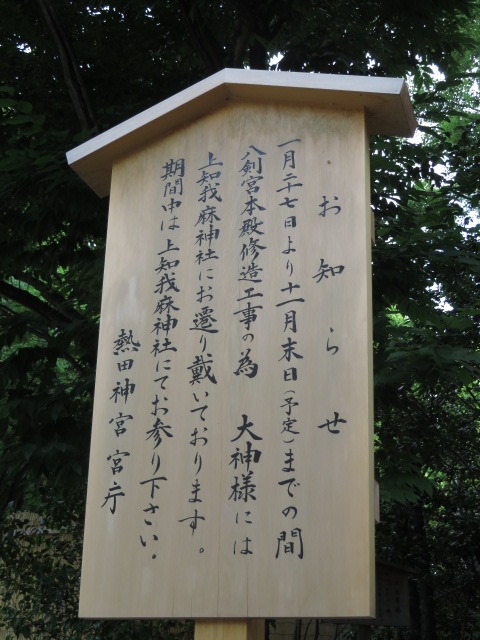 お知らせ
一月二十七日より十一月末日(予定)までの間
八剣宮本殿修造工事の為 大神様には
上知我麻神社にお遷り戴いております。
期間中は上知我麻神社にてお参り下さい。
熱田神宮宮庁